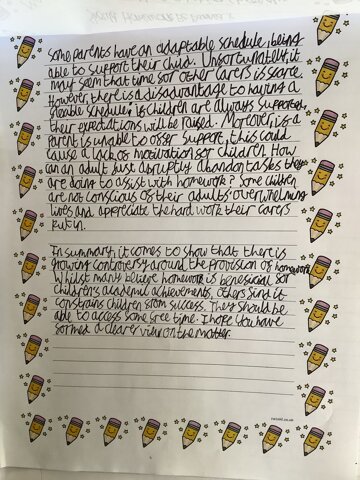 Some parents have an adaptable schedule, being
able to support their child. Unfortunately, it
may seem that time for other carers is scarce.
However, there is a disadvantage to having a
flexible schedule; if children are always supported,
their expectations will be raised. Moreover, if a
parent is unable to offer support, this could
cause a lack of motivation for children. How
can an adult just abruptly abandon tasks they
are doing to assist with homework? Some children
are not conscious of their adults' overwhelming
lives and appreciate the hard work their carers
Put in.
In summary, it comes to show that there is
growing controversy around the provision of homework
Whilst many believe homework is beneficial for
children's academic achievements, others find it
constrains children from success. They should be
able to access some free time. I hope you have
formed a clearer view on the matter.
twinkl.co.uk